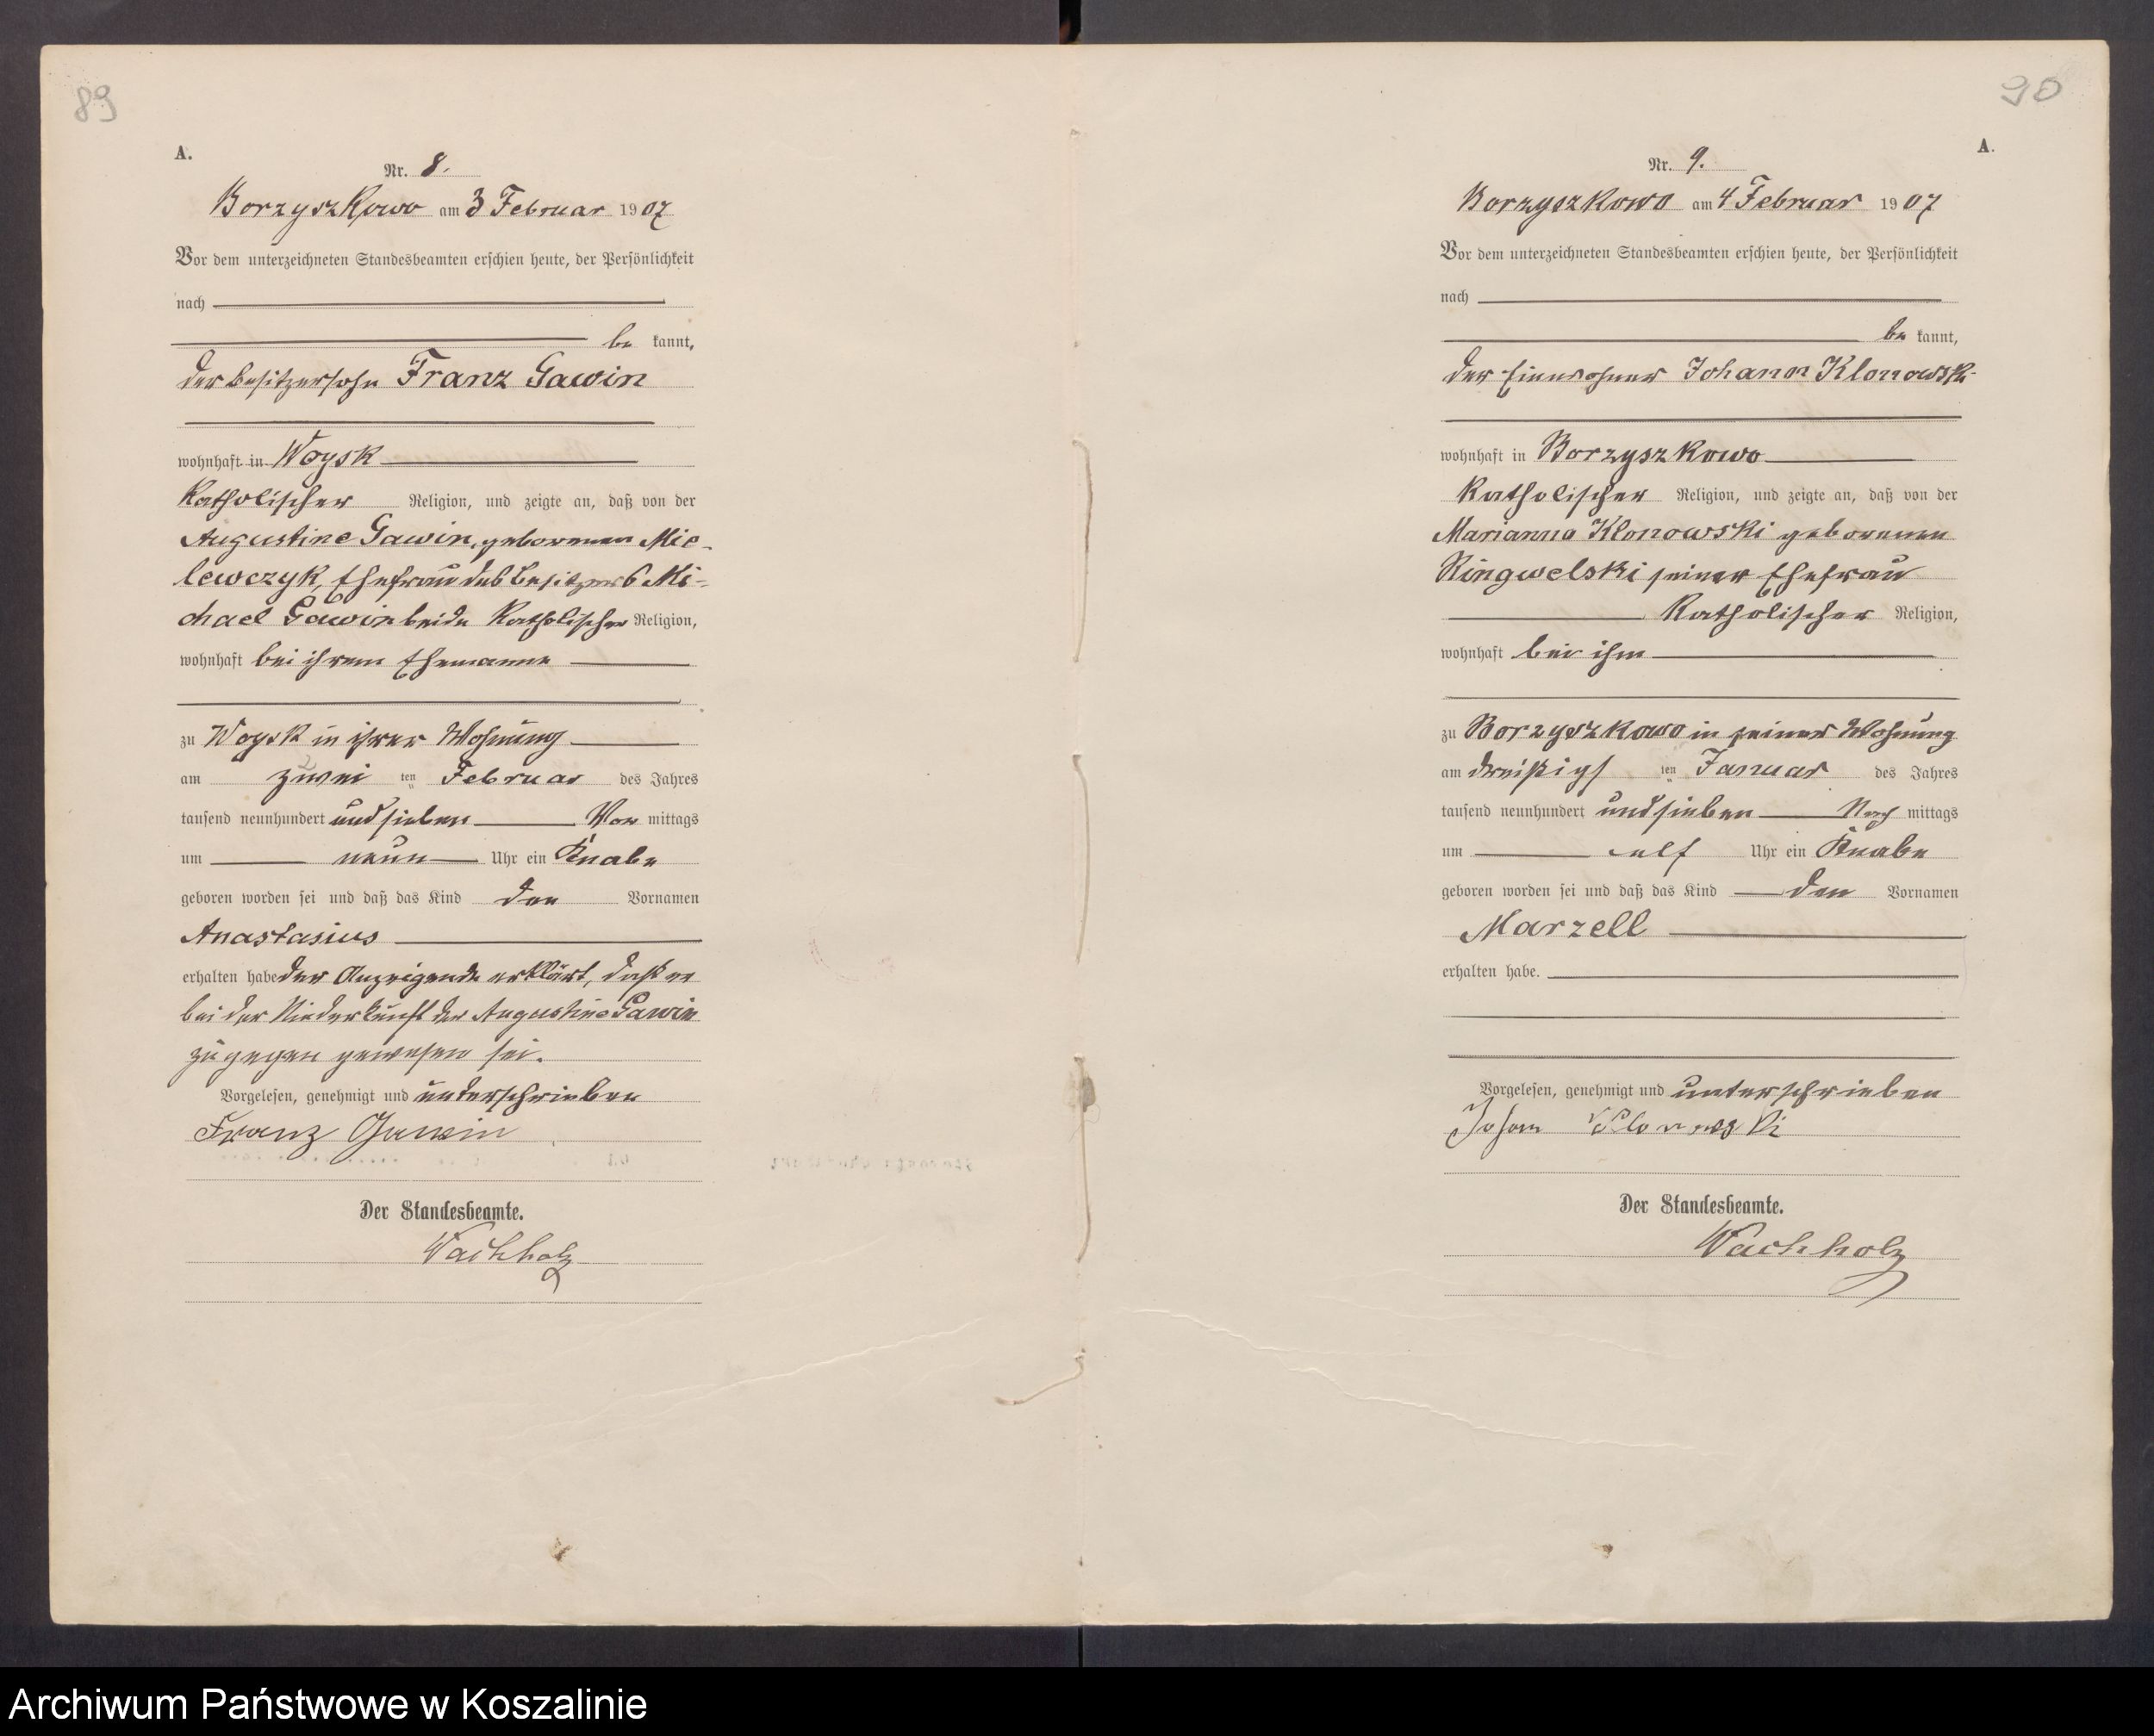 89
A.
Nr. 8.
Borzyszkowo am 3 Februar 1907
Vor dem unterzeichneten Standesbeamten erschien heute, der Persönlichkeit
nach
be kannt,
der Besitzersohn Franz Gawin
wohnhaft in Woysk
katholischer Religion, und zeigte an, daß von der
Augustine Gawin, geborenen Mie-
lewczyk, Ehefrau des Besitzers Mi-
chael Gawin beide katholischer Religion,
wohnhaft bei ihrem Ehemanne
zu Woysk in ihrer Wohnung
am zwei ten Februar des Jahres
tausend neunhundert und sieben Vor mittags
um neun Uhr ein Knabe
geboren worden sei und daß das Kind den Vornamen
Anastasius
erhalten habe der Anzeigende erklärt, daß er
bei der Niederkunft der Augustine Gawin
zugegen gewesen sei.
Vorgelesen, genehmigt und unterschrieben
Franz Gawin
Der Standesbeamte.
Wachholz
90
A.
Nr. 9.
Borzyszkowo am 4 Februar 1907
Vor dem unterzeichneten Standesbeamten erschien heute, der Persönlichkeit
nach
be kannt,
der Einwohner Johann Klonowski
wohnhaft in Borzyszkowo
katholischer Religion, und zeigte an, daß von der
Marianna Klonowski geborenen
Ringwelski seiner Ehefrau
katholischer Religion,
wohnhaft bei ihm
zu Borzyszkowo in seiner Wohnung
am dreißigs ten Januar des Jahres
tausend neunhundert und sieben Nach mittags
um elf Uhr ein Knabe
geboren worden sei und daß das Kind den Vornamen
Marzell
erhalten habe.
Vorgelesen, genehmigt und unterschrieben
Johann Klonowski
Der Standesbeamte.
Wachholz
Archiwum Państwowe w Koszalinie